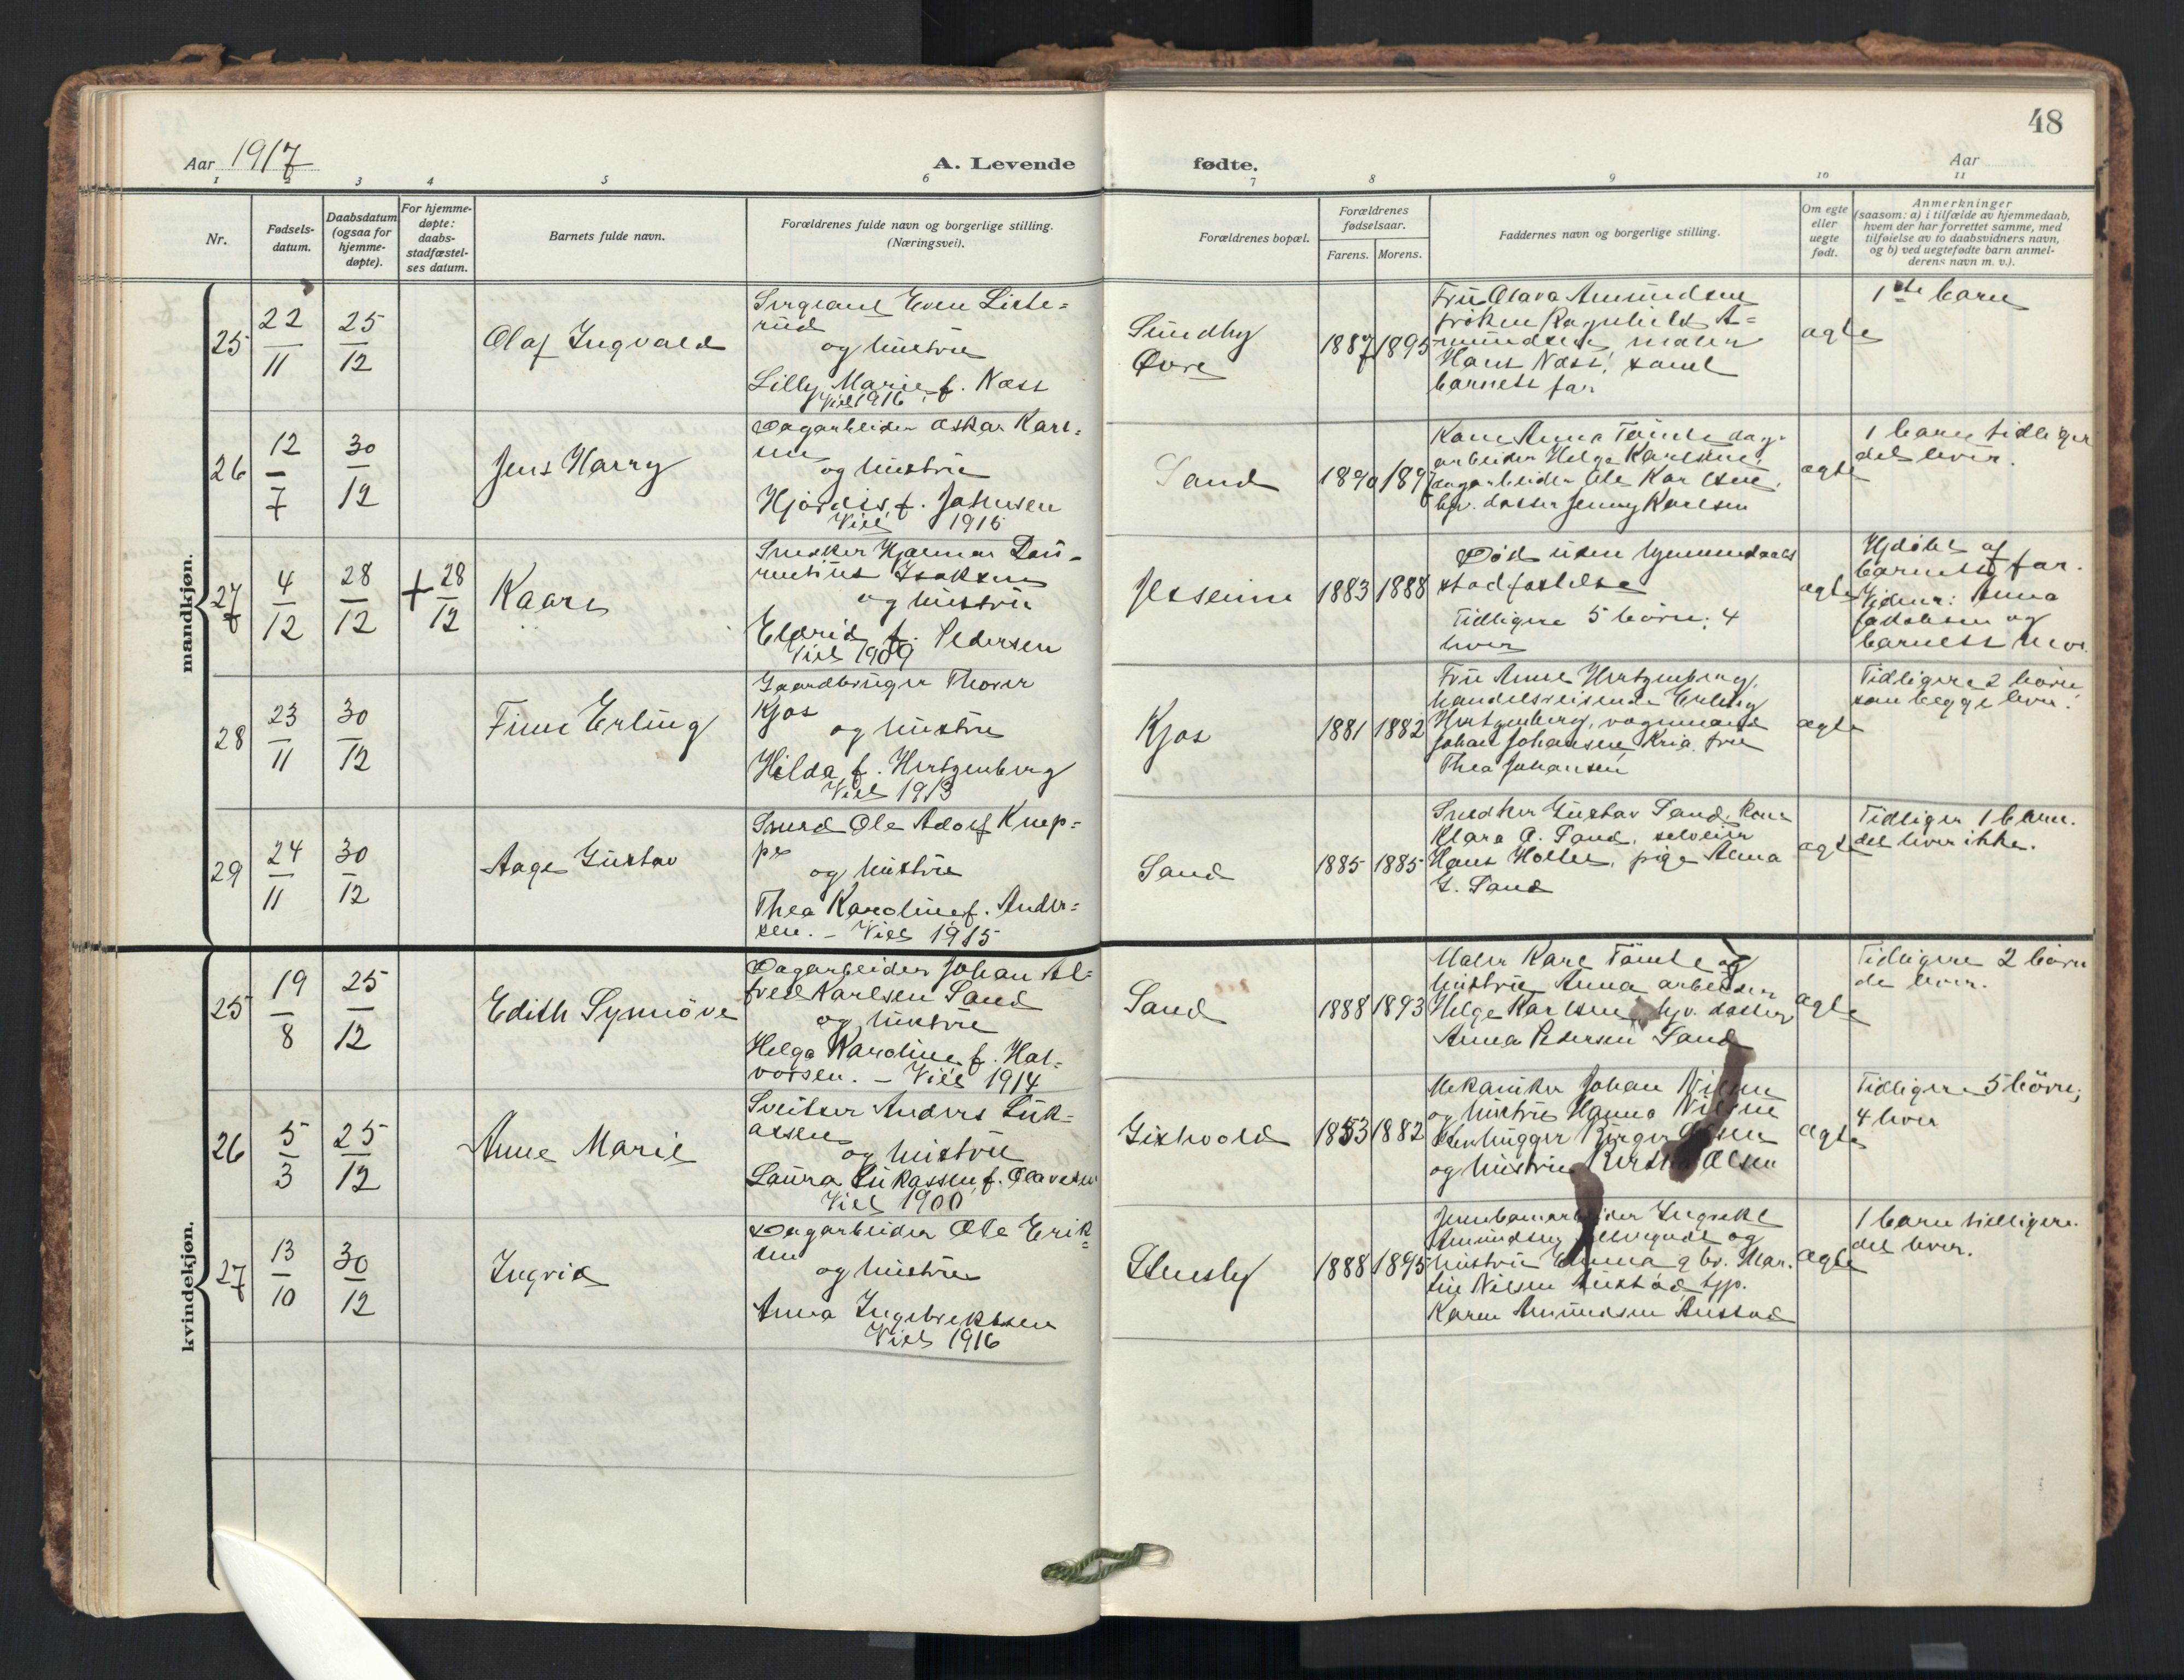 48
Aar 1917
A. Levende
fødte.
Aar
1 2 3 4 5 6 7 8 9 10 11
Nr.
Fødsels-
datum.
Daabsdatum
(ogsaa for
hjemme-
døpte).
For hjemme-
døpte:
daabs-
stadfæstel-
ses datum.
Barnets fulde navn.
Forældrenes fulde navn og borgerlige stilling.
(Næringsvei).
Forældrenes bopæl.
Forældrenes
fødselsaar.
Farens. Morens.
Faddernes navn og borgerlige stilling.
Om egte
eller
uegte
født.
Anmerkninger
(saasom: a) i tilfælde av hjemmedaab,
hvem der har forrettet samme, med
tilføielse av to daabsvidners navn,
og b) ved uegtefødte barn anmel-
derens navn m. v.).
mandkjøn.
25
22
11
25
12
Olaf Ingvald
Sergeant Even Liste=
rud
og hustru
Lilly Marie f. Næss
Viet 1916
Sundby
Øvre
1887 1895
Fru Olava Amundsen
frøken Ragnhild A=
mundsen, maler
Hans Næss, samt
barnets far
ægte
1ste barn
26
12
7
30
12
Jens Harry
Dagarbeider Oskar Karl=
sen
og hustru
Hjørdis f. Johnsen
Viet 1916
Sand
1890 189
Kone Anna Tømte dag-
arbeider Helge Karlsen,
dagarbeider Ole Karlsen,
hjv. datter Jenny Karlsen
ægte
1 barn tidligere
det lever.
27
4
12
28
12
+ 28
12
Kaare
Snekker Hjalmar Lau-
rentius Isaksen
og hustru
Eldrid f. Pedersen
Viet 1909
Jesseim
1883 1888
Død uten hjemmedaabs
stadfæstelse
Tidligere 5 børn; 4
lever
ægte
Hjdøbt af
barnets far.
Vidner: Anna
Jakobsen og
barnets mor.
28
23
11
30
12
Finn Erling
Gaardbruger Thorer
Kjos
og hustru
Hilda f. Hertzenberg
Viet 1913
Kjos
1881 1882
Fru Anne Hertzenberg,
handelsreisende Erling
Hertzenberg, vognmand
Johan Johansen, Kria. fru
Thea Johansen
ægte
Tidligere 2 børn,
som begge lever.
29
24
11
30
12
Aage Gustav
Smed Ole Adolf Knep=
pe
og hustru
Thea Karoline f. Ander=
sen. - Viet 1915
Sand
1885 1885
Snedker Gustav Sand, kone
Klara A. Sand, selveier
Hans Holter, pige Alma
G. Sand
ægte
Tidliger 1 barn.
det lever ikke.
kvindekjøn.
25
19
8
25
12
Edith Synnöve
Dagarbeider Johan Al=
fred Karlsen Sand
og hustru
Helga Karoline f. Hal=
vorsen. - Viet 1914
Sand
1888 1893
Maler Karl Tömte og
hustru Anna arbeider
Helge Karlsen, hjv. datter
Anna Pedersen Sand
ægte
Tidligere 2 børn
de lever.
26
5
3
25
12
Anne Marie
Sveitser Anders Luk-
assen
og hustru
Laura Lukassen f. Olavesen
Viet 1900
Gishvold
1853 1882
Mekaniker Johan Nilsen
og hustru Hanna Nilsen
Stenhugger Birger Olsen
og hustru Olsen
ægte
Tidligere 5 børn;
4 lever
27
13
10
30
12
Ingrid
Dagarbeider Ole Erik=
sen
og hustru
Anna Ingebrektsen
Viet 1916
Stensby
1888 1895
Jernbanearbeider Ingvald
Amundsen og
hustru Emma gbr. Mar.
tin Nilsen Austad, tjp.
Karen Amundsen Austad
ægte
1 barn tidligere.
det lever.